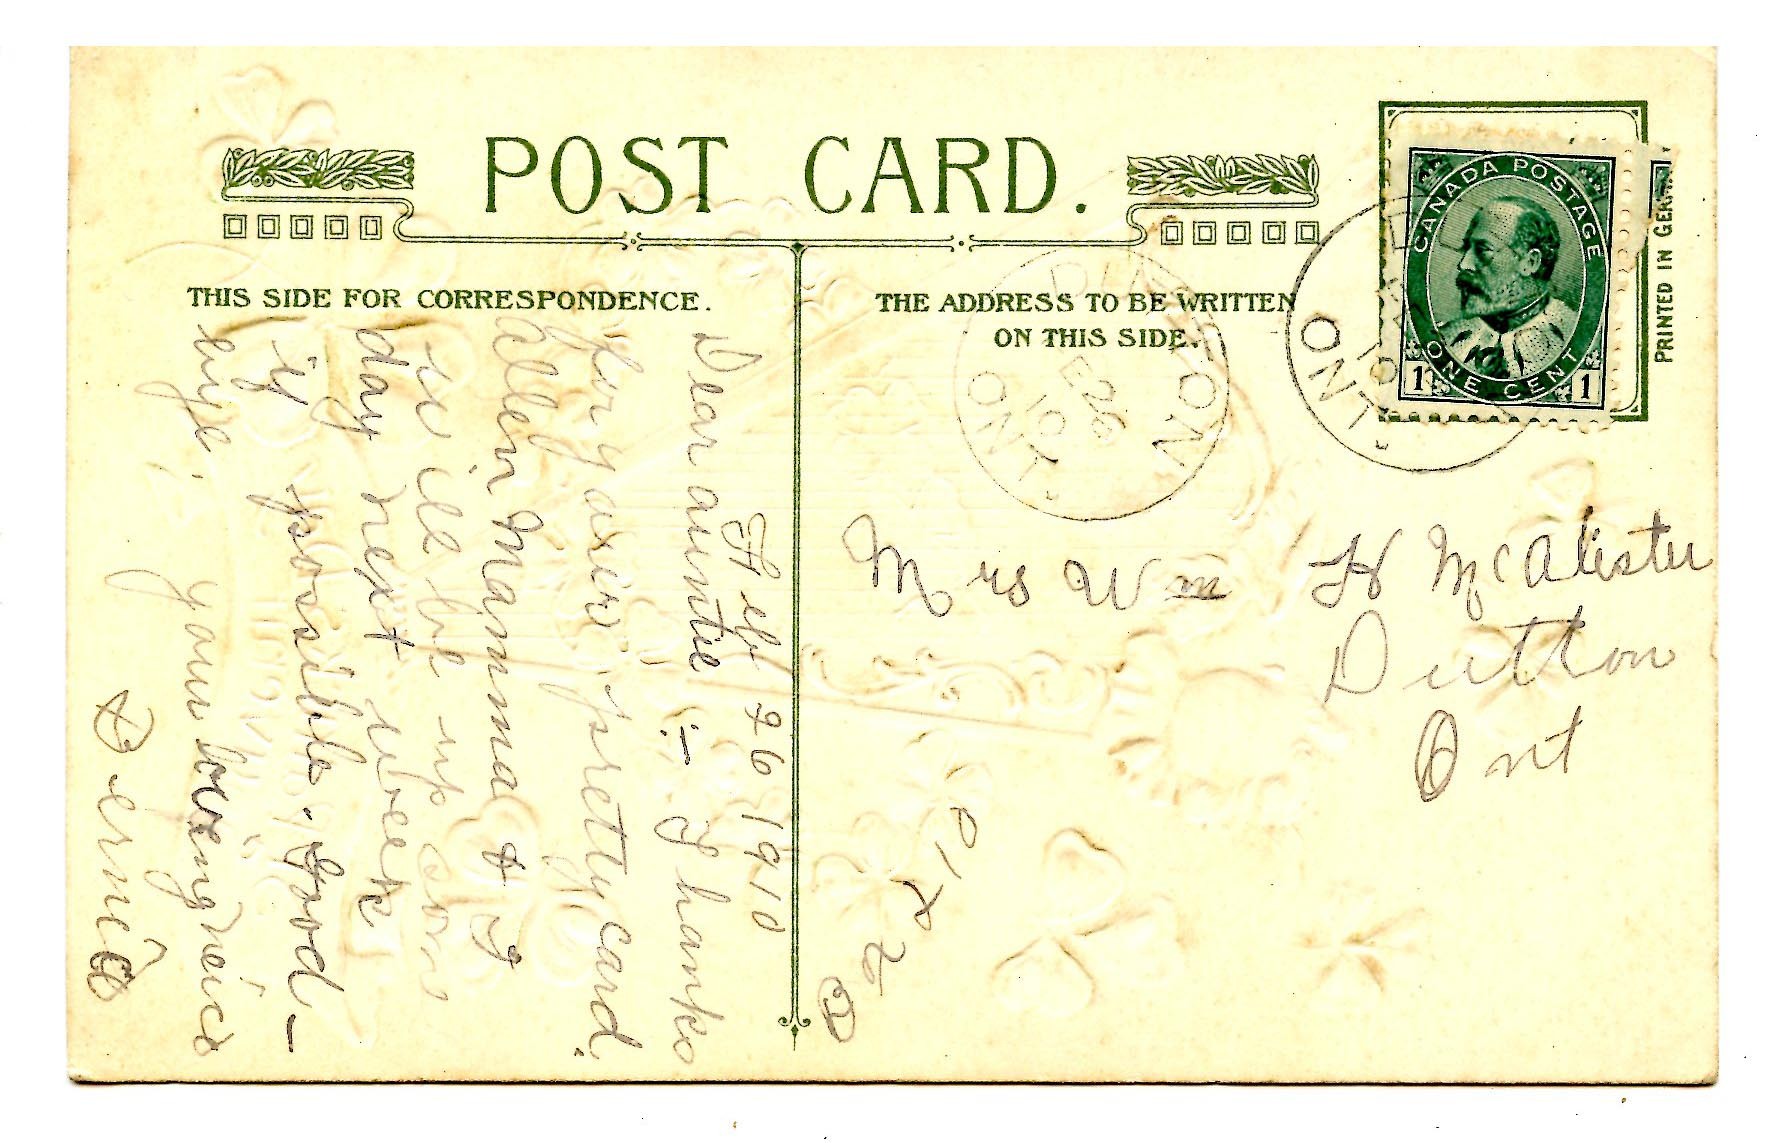 POST CARD.
THIS SIDE FOR CORRESPONDENCE.
THE ADDRESS TO BE WRITTEN
ON THIS SIDE.
CANADA POSTAGE
ONE CENT
1 1
PRINTED IN GER
ONT.
DUTTON
FE 26
10
ONT.
Feb 26 1910
Dear auntie :- Thanks
for your pretty card.
Allen Mamma & I
will be up some
day next week
if possible. Good-
bye. your loving neice
Bernice
Mrs Wm H McAlister
Dutton
Ont